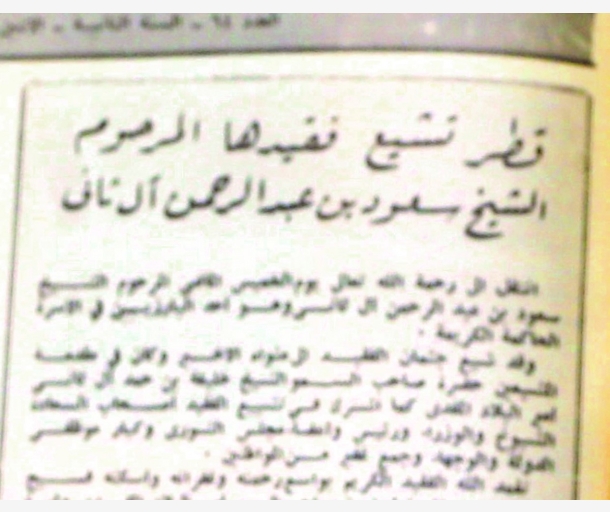 العدد ٦٤ - السنة الثانية - الاثنين
قطر تشيع فقيدها المرحوم
الشيخ سعود بن عبدالرحمن آل ثاني
انتقل الى رحمة الله تعالى يوم الخميس الماضي المرحوم الشيخ
سعود بن عبد الرحمن آل ثاني وهو احد البارزين في الاسرة
الحاكمة الكريمة .
وقد شيع جثمان الفقيد الى مثواه الاخير وكان في مقدمة
المشيعين حضرة صاحب السمو الشيخ خليفة بن حمد آل ثاني
امير البلاد المفدى كما اشترك في تشييع الفقيد أصحاب السعادة
الشيوخ والوزراء ورئيس واعضاء مجلس الشورى وكبار موظفي
الدولة والوجهاء وجمع غفير من المواطنين .
تغمد الله الفقيد الكريم بواسع رحمته وغفرانه واسكنه فسيح